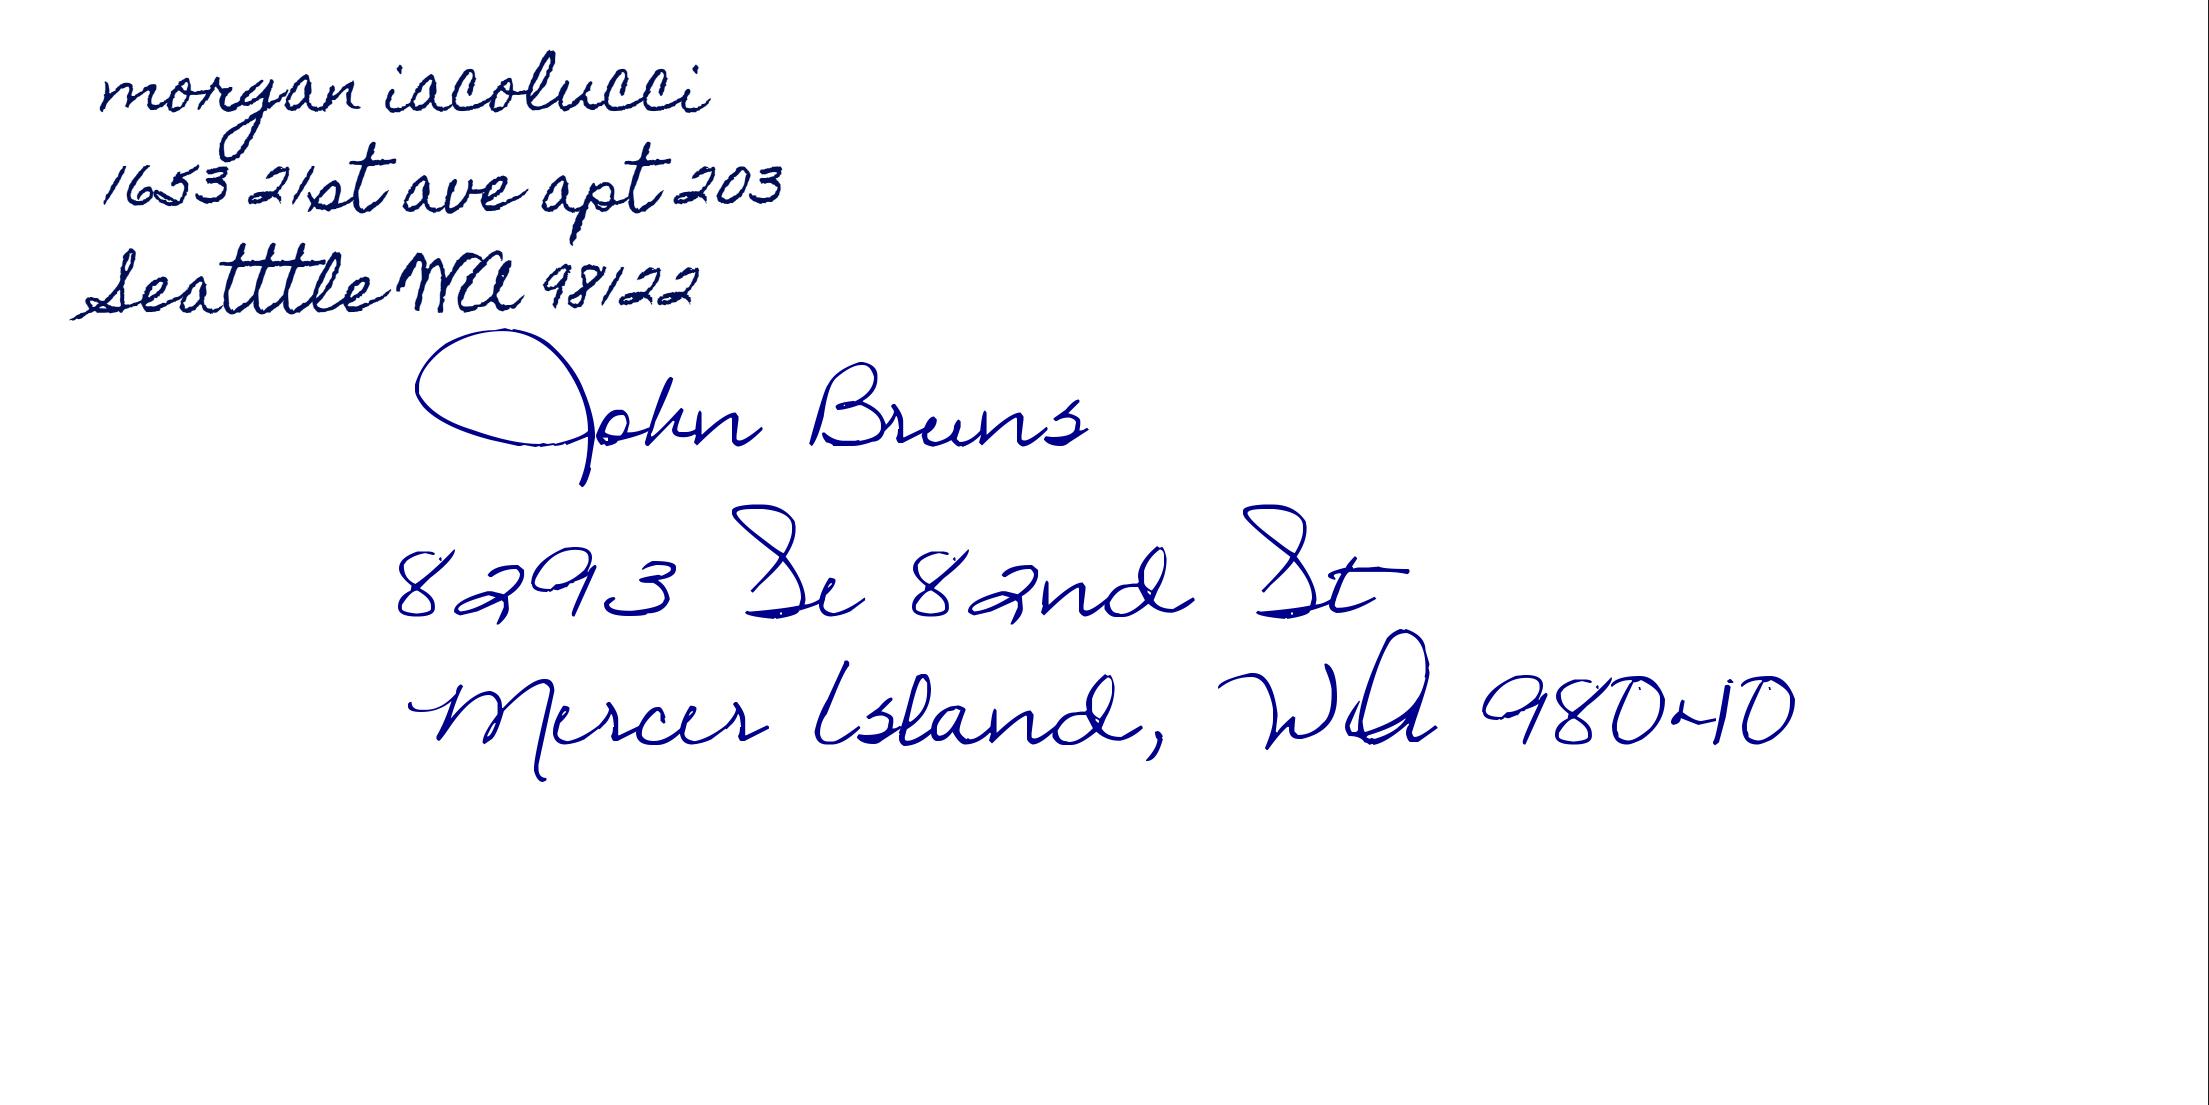 morgan iacolucci
1653 21st ave apt 203
Seatttle WA 98122
John Bruns
8293 Se 82nd St
Mercer Island, WA 98040